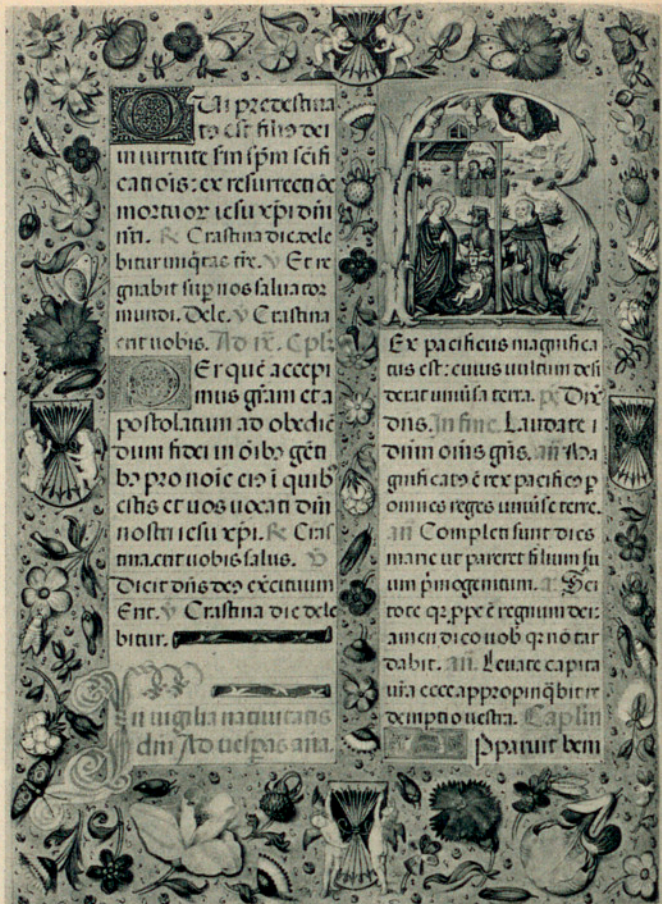 Qui predestina
tꝰ est filiꝰ dei
in uirtute s̄m sp̄m sc̄ifi
catiōis: ex resurrectiōe
mortuoꝝ iesu xp̄i dn̄i
nr̄i. ℟ Crastina die dele
bitur iniq̄tas tr̄e. ℣ Et re
gnabit sup̄ nos saluator
mundi. Dele. ℣ Crastina
erit uobis. Ad ix. Cpl̄.
Per quē accepi
mus gr̄am et a
postolatum ad obediē
dum fidei in oı̄bꝰ gēti
bꝰ pro noı̄e eiꝰ ī quibꝰ
estis et uos uocati dn̄i
nostri iesu xp̄i. ℟ Cras
tina erit uobis salus. ℣
Dicit dn̄s deꝰ exercituum
Erit. ℣ Crastina die dele
bitur.
In uigilia natiuitatis
dn̄i Ad uesp̄as an̄a.
Rex pacificus magnifica
tus est: cuius uultum desi
derat uniūsa terra. p̄s Dix̄
dn̄s. In fine. Laudate
dn̄m om̄s gn̄s. an̄ Ma
gnificatꝰ ē rex pacificꝰ sup̄
omnes reges uniūse terre.
an̄ Completi sunt dies
marie ut pareret filium su
um p̄mogenitum. a. Sci
tote qꝛ p̄pe ē regnum dei:
amen dico uob̄ qꝛ nō tar
dabit. an̄. Leuate capita
ur̄a ecce appropinq̄bit re
demptio uestra. Cap̄lm
Apparuit beni